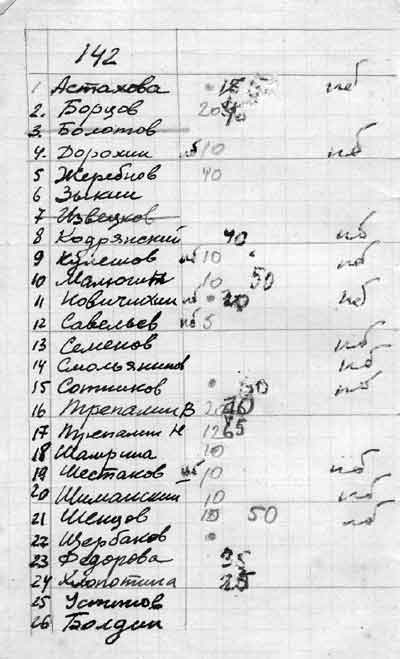 142
1 Астахова нб
2. Борцов 20
3. Болотов
4. Дорохин нб 10 нб
5 Жеребнов 40
6 Зыкин
7 Извецков
8 Кодрянский 40 нб
9 Кулешов нб 10 нб
10 Малютин 10 50
11 Новичихин нб 20 нб
12 Савельев нб 5
13 Семенов нб
14 Смольянинов нб
15 Сотников 50 нб
16 Трепалин В
17 Трепалин Н 65
18 Шамрина 10
19 Шестаков нб 10 нб
20 Шиманский 10 нб
21 Шенцов 10 50 нб
22 Щербаков
23 Федорова 35
24 Хлопотина 25
25 Устинов
26 Болдин